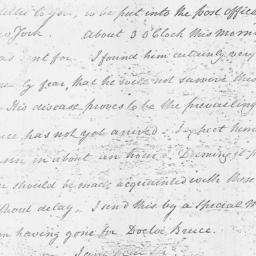 letter to you, to be put into the post office
York. About 3 O'Clock this morn
sent for. I found him certainly very
by fear, that he will not survive this
His disease proves to be the prevailing
has not yet arrived. I expect him
in about an hour. Deeming it p
should be made acquainted with these
without delay. I send this by a special m
having gone for Doctor Bruce.
I am Dear Sir